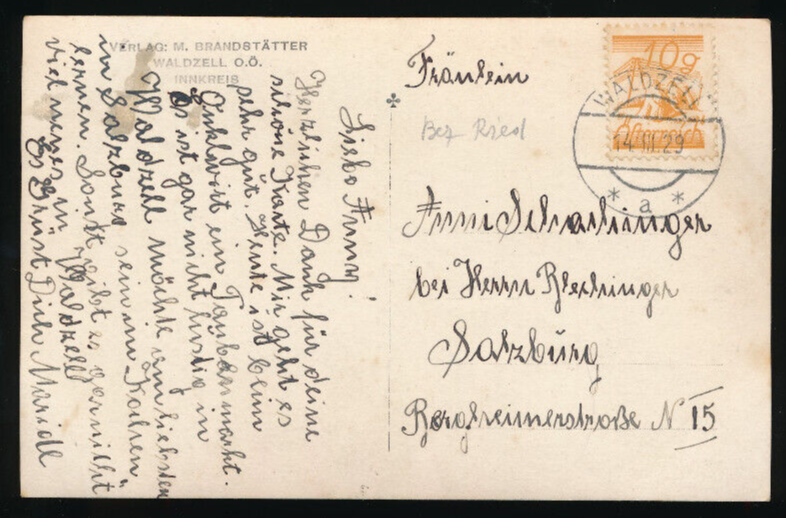 VERLAG: M. BRANDSTÄTTER
WALDZELL O.Ö.
INNKREIS
Liebe Anny!
Herzlichen Dank für deine
schöne Karte. Mir geht es
sehr gut. Heute ist beim
ein Taubenmarkt.
Es ist gar nicht lustig in
Waldzell möchte am liebsten
in Salzburg sein im Kochen
lernen. Sonst gibt es gar nicht
viel neues in Waldzell
Es Grüst Dich Maridl
10g
Österreich
WALDZELL
14.III.29
* a *
Fräulein
Bez Ried
Anni Schachinger
bei Herrn Blechinger
Salzburg
Bergheimerstroße N 15